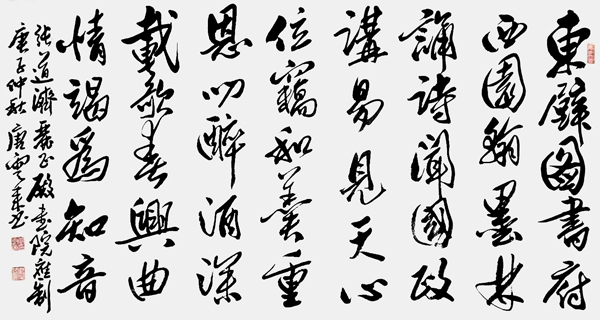 東壁圖書府
西園翰墨林
誦詩聞國政
講易見天心
位竊和羹重
恩叨醉酒深
載歌春興曲
情竭爲知音
張道濟麗正殿書院應制
庚子仲秋唐雲來書